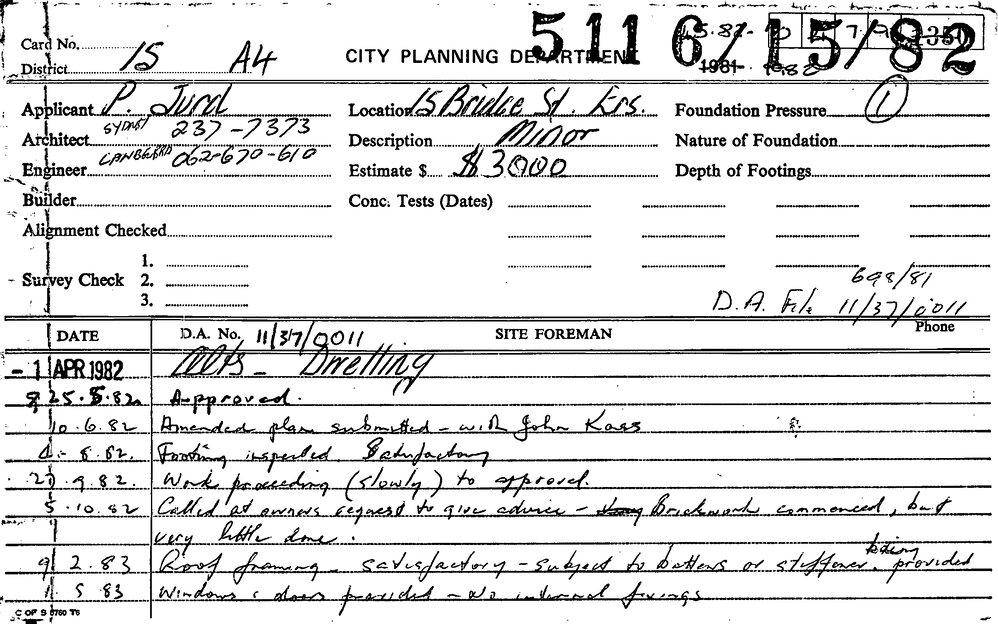 5116/15/82
Card No. 15 A4
District
CITY PLANNING DEPARTMENT
1981
Applicant P. Jurd Location 15 Bridge St. Ers. Foundation Pressure 1
Architect SYDNEY 237-7373 Description Minor Nature of Foundation
Engineer CANBERRA 062-670-610 Estimate $ $3000 Depth of Footings
Builder Conc. Tests (Dates)
Alignment Checked
1.
Survey Check 2.
3.
698/81
D.A. File 11/37/0011
Phone
DATE D.A. No. 11/37/0011 SITE FOREMAN
- 1 APR 1982 Alts - Dwelling
25.5.82 Approved.
10.6.82 Amended plan submitted - with John Kass
4.8.82. Footing inspected. Satisfactory
9.82. Work proceeding (slowly) to approval.
5.10.82 Called at owners request to give advice - Brickwork commenced, but
very little done.
9 2.83 Roof framing - satisfactory - subject to battens or stiffener being provided
1. 5 83 Windows & doors provided - No internal fixings
C OF S 8760 T6